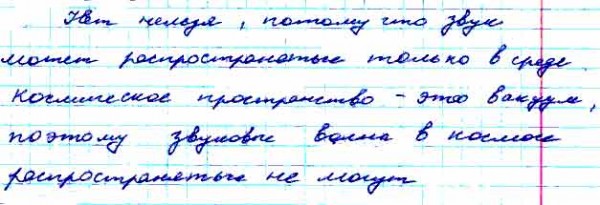 Нет нельзя, потому что звук
может распространятьс только в среде
космическое пространство - это вакуум,
поэтому звуковые волна в космосе
распространятьс не могут